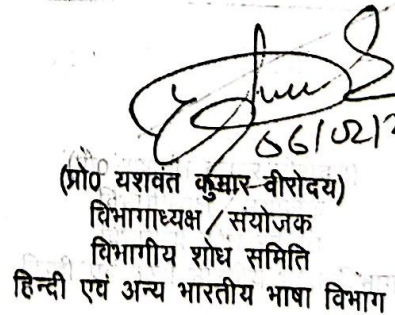 06/02/2
(प्रो0 यशवंत कुमार वीरोदय)
विभागाध्यक्ष / संयोजक
विभागीय शोध समिति
हिन्दी एवं अन्य भारतीय भाषा विभाग